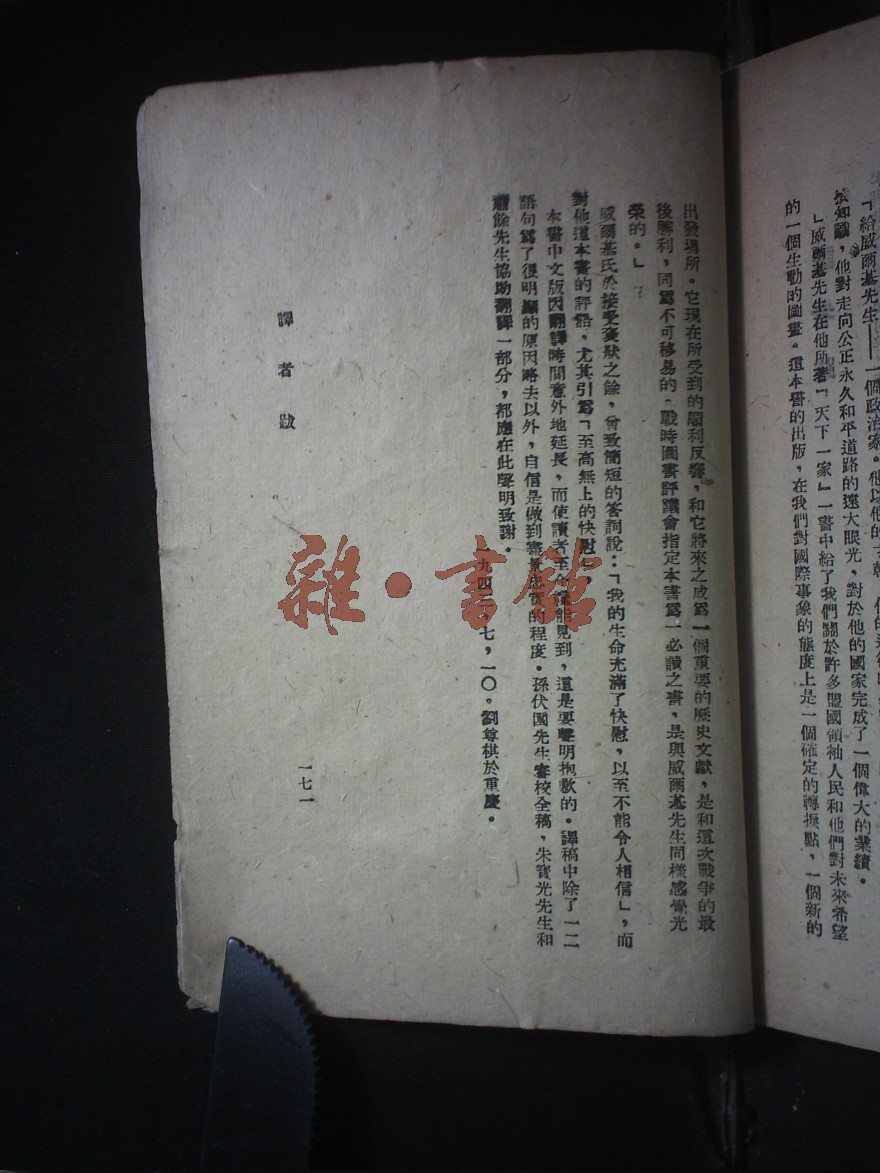 「給威爾基先生——一個政治家。他以他的
按知識，他對走向公正永久和平道路的遠大眼光，對於他的國家完成了一個偉大的業績。
」威爾基先生在他所著「天下一家」一書中給了我們關於許多盟國領袖人民和他們對未來希望
的一個生動的圖畫。這本書的出版，在我們對國際事象的態度上是一個確定的轉捩點，一個新的
出發場所。它現在所受到的順利反響，和它將來之成爲一個重要的歷史文獻，是和這次戰爭的最
後勝利，同爲不可移易的。戰時圖書評議會指定本書爲一必讀之書，是與威爾基先生同樣感覺光
榮的。」
威爾基氏於接受褒狀之餘，曾致簡短的答詞說：「我的生命充滿了快慰，以至不能令人相信」，而
對他這本書的評語，尤其引爲「至高無上的快慰」。
本書中文版因翻譯時間意外地延長，而使讀者至今能見到，這是要聲明抱歉的。譯稿中除了一二
語句爲了很明顯的原因略去以外，自信是做到審愼忠實的程度。孫伏園先生審校全稿，朱寶光先生和
蕭餘先生協助翻譯一部分，都應在此聲明致謝。
一九四三，七，一〇。劉尊棋於重慶。
譯者跋
一七一
雜·書館